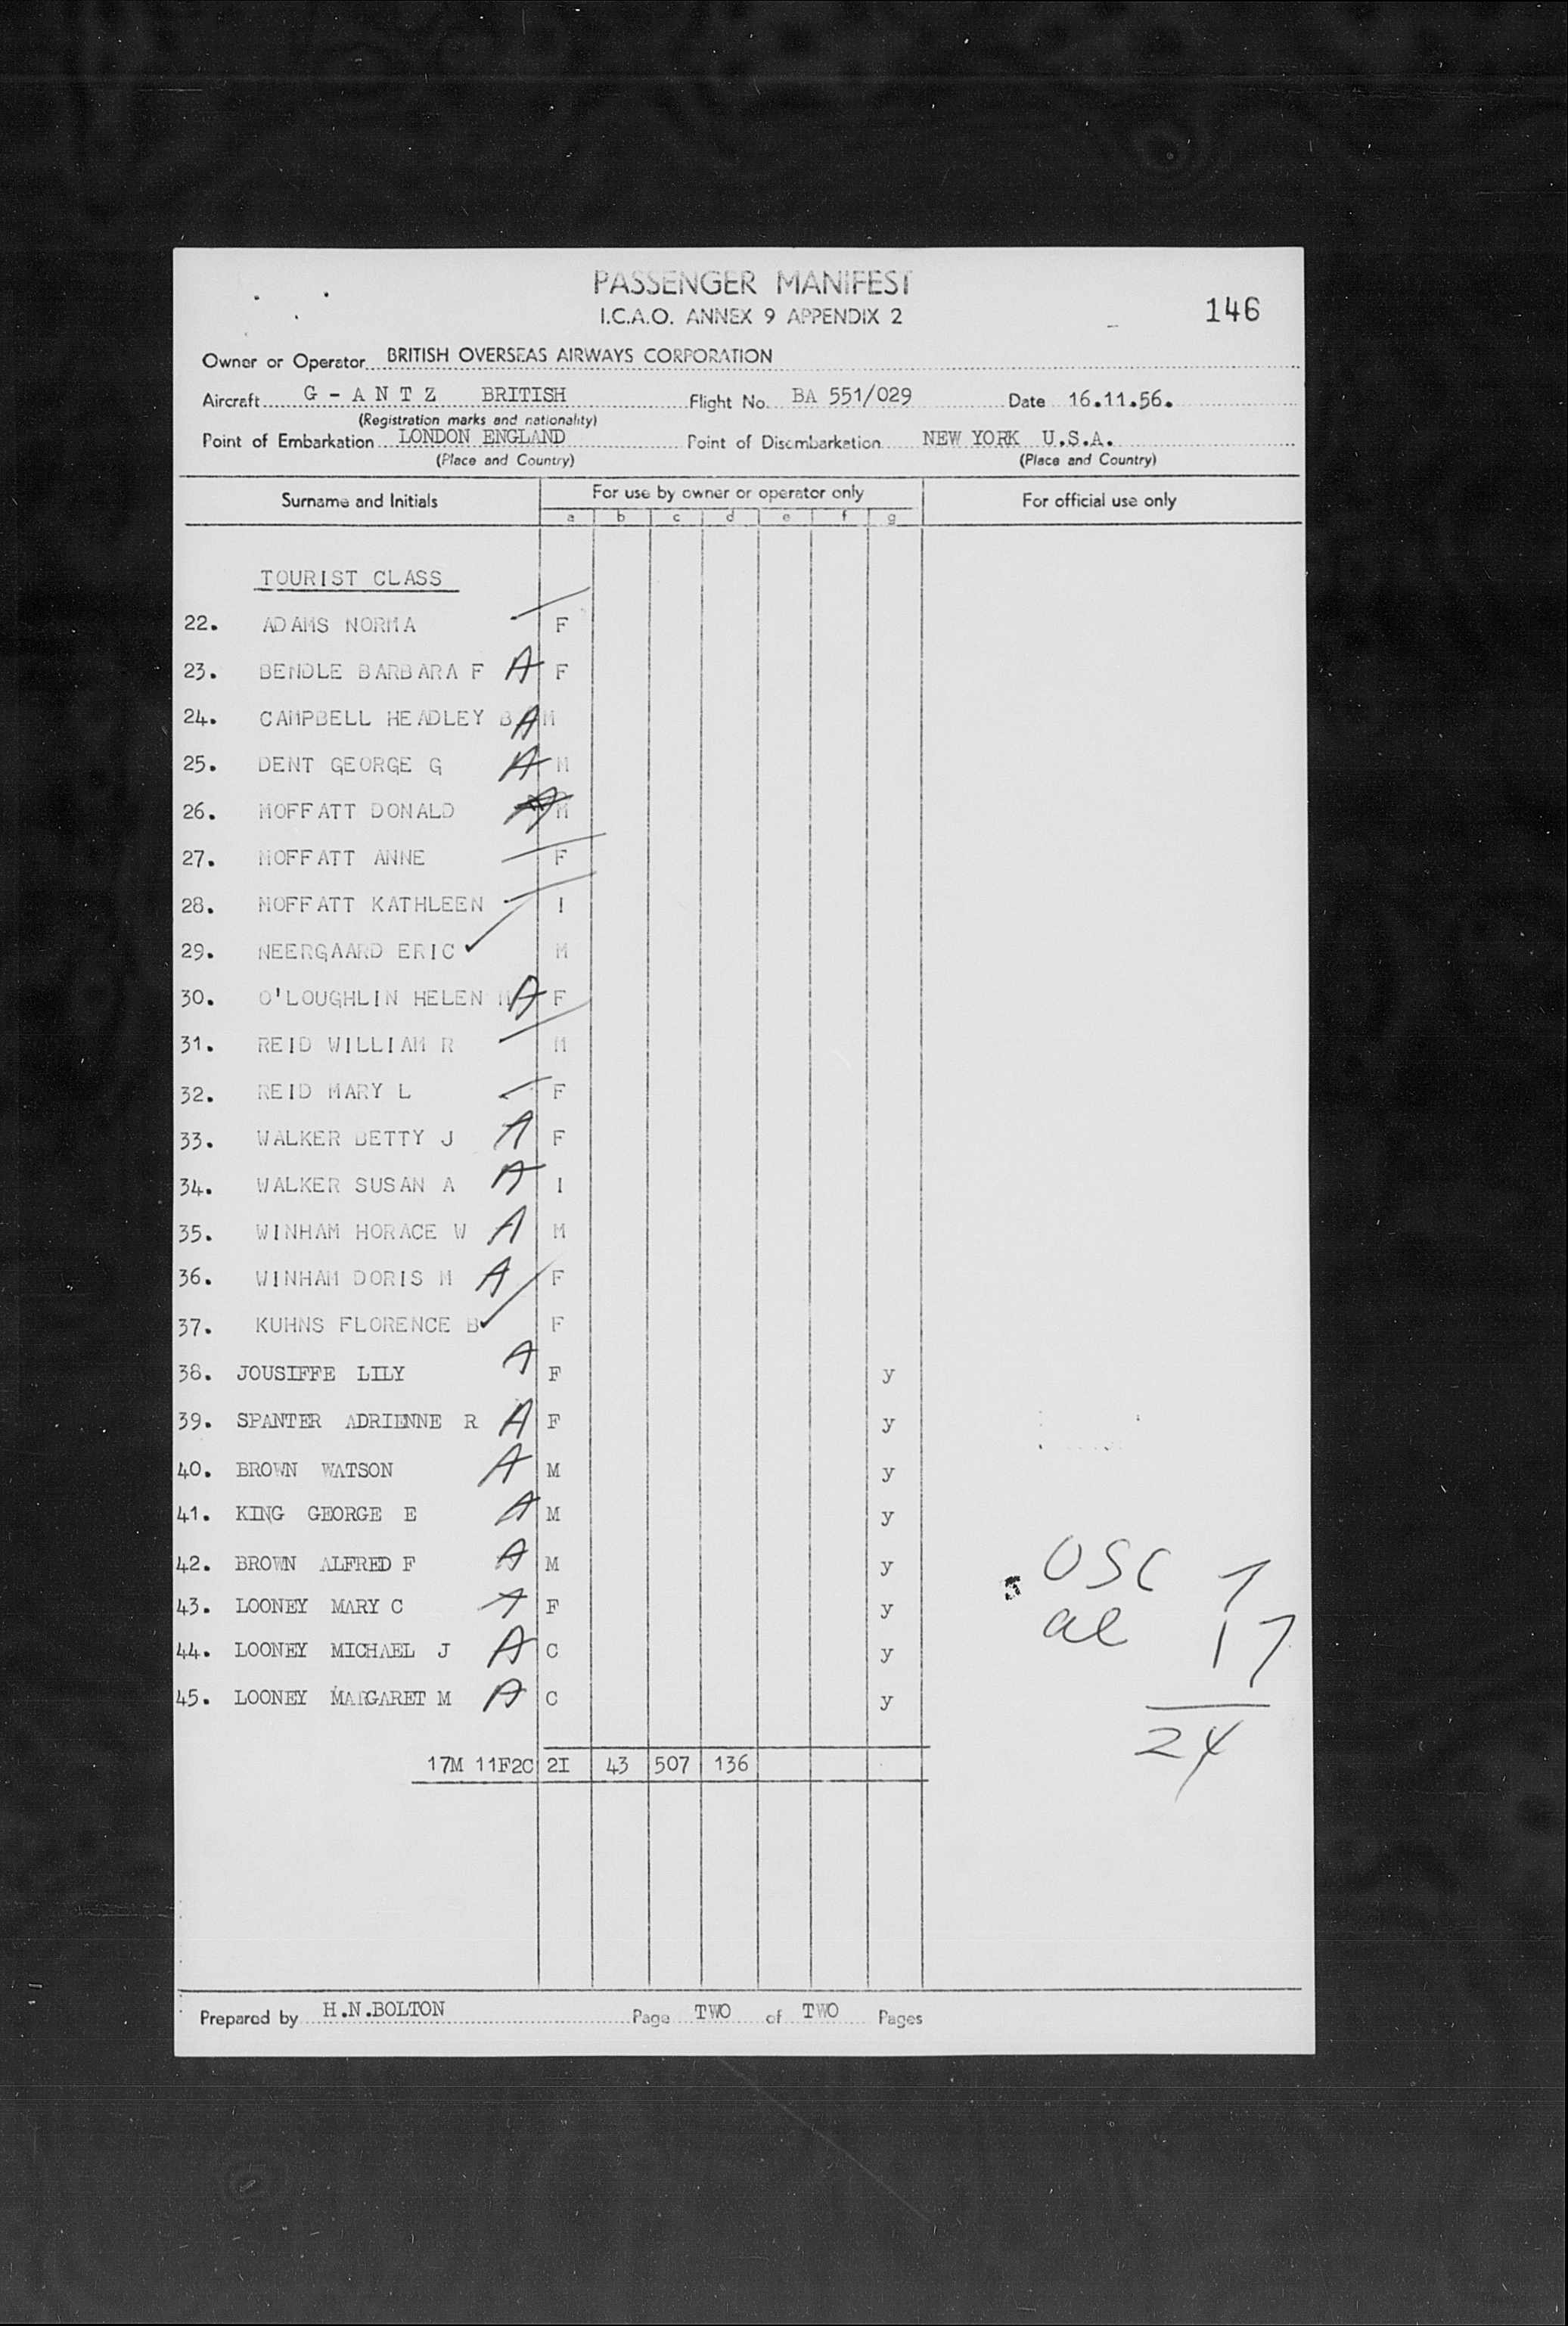 PASSENGER MANIFEST
I.C.A.O. ANNEX 9 APPENDIX 2
146
Owner or Operator BRITISH OVERSEAS AIRWAYS CORPORATION
Aircraft G - A N T Z BRITISH Flight No. BA 551/029 Date 16.11.56.
(Registration marks and nationality)
Point of Embarkation LONDON ENGLAND Point of Disembarkation NEW YORK U.S.A.
(Place and Country) (Place and Country)
Surname and Initials For use by owner or operator only For official use only
a b c d e f g
TOURIST CLASS
22. ADAMS NORMA F
23. BENDLE BARBARA F A F
24. CAMPBELL HEADLEY B A M
25. DENT GEORGE G A M
26. MOFFATT DONALD M
27. MOFFATT ANNE F
28. MOFFATT KATHLEEN I
29. NEERGAARD ERIC M
30. O'LOUGHLIN HELEN A F
31. REID WILLIAM R M
32. REID MARY L F
33. WALKER BETTY J A F
34. WALKER SUSAN A A I
35. WINHAM HORACE W A M
36. WINHAM DORIS M A F
37. KUHNS FLORENCE B F
38. JOUSIFFE LILY A F y
39. SPANTER ADRIENNE R A F y
40. BROWN WATSON A M y
41. KING GEORGE E A M y
42. BROWN ALFRED F A M y
43. LOONEY MARY C A F y
44. LOONEY MICHAEL J A C y
45. LOONEY MARGARET M A C y
USC 7
al 17
24
17M 11F2C 2I 43 507 136
Prepared by H.N.BOLTON Page TWO of TWO Pages